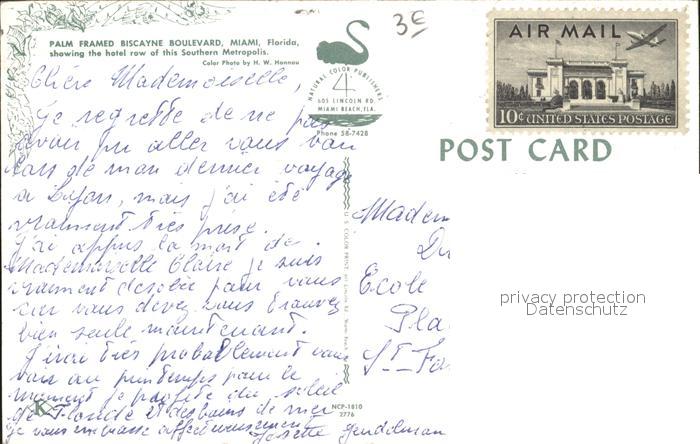 PALM FRAMED BISCAYNE BOULEVARD, MIAMI, Florida,
showing the hotel row of this Southern Metropolis.
Color Photo by H. W. Hannau
3€
NATURAL COLOR PUBLISHERS
4
605 LINCOLN RD.
MIAMI BEACH, FLA.
Phone 58-7428
AIR MAIL
10¢ UNITED STATES POSTAGE
POST CARD
Chère Mademoiselle,
je regrette de ne pas
avoir pu aller vous voir
lors de mon dernier voyage
à Lyon, mais j'ai été
vraiment très prise.
J'ai appris la mort de
Mademoiselle Claire je suis
vraiment désolée pour vous
car vous devez vous trouvez
bien seule maintenant.
J'irai très probablement vous
voir au printemps pour le
moment je profite du soleil
de Floride et des bains de mer
je vous embrasse affectueusement
Josette
Madem
Du
Ecole
Pla
ST-Fo
privacy protection
Datenschutz
U.S. COLOR PRINT
K
NCP-1810
2776